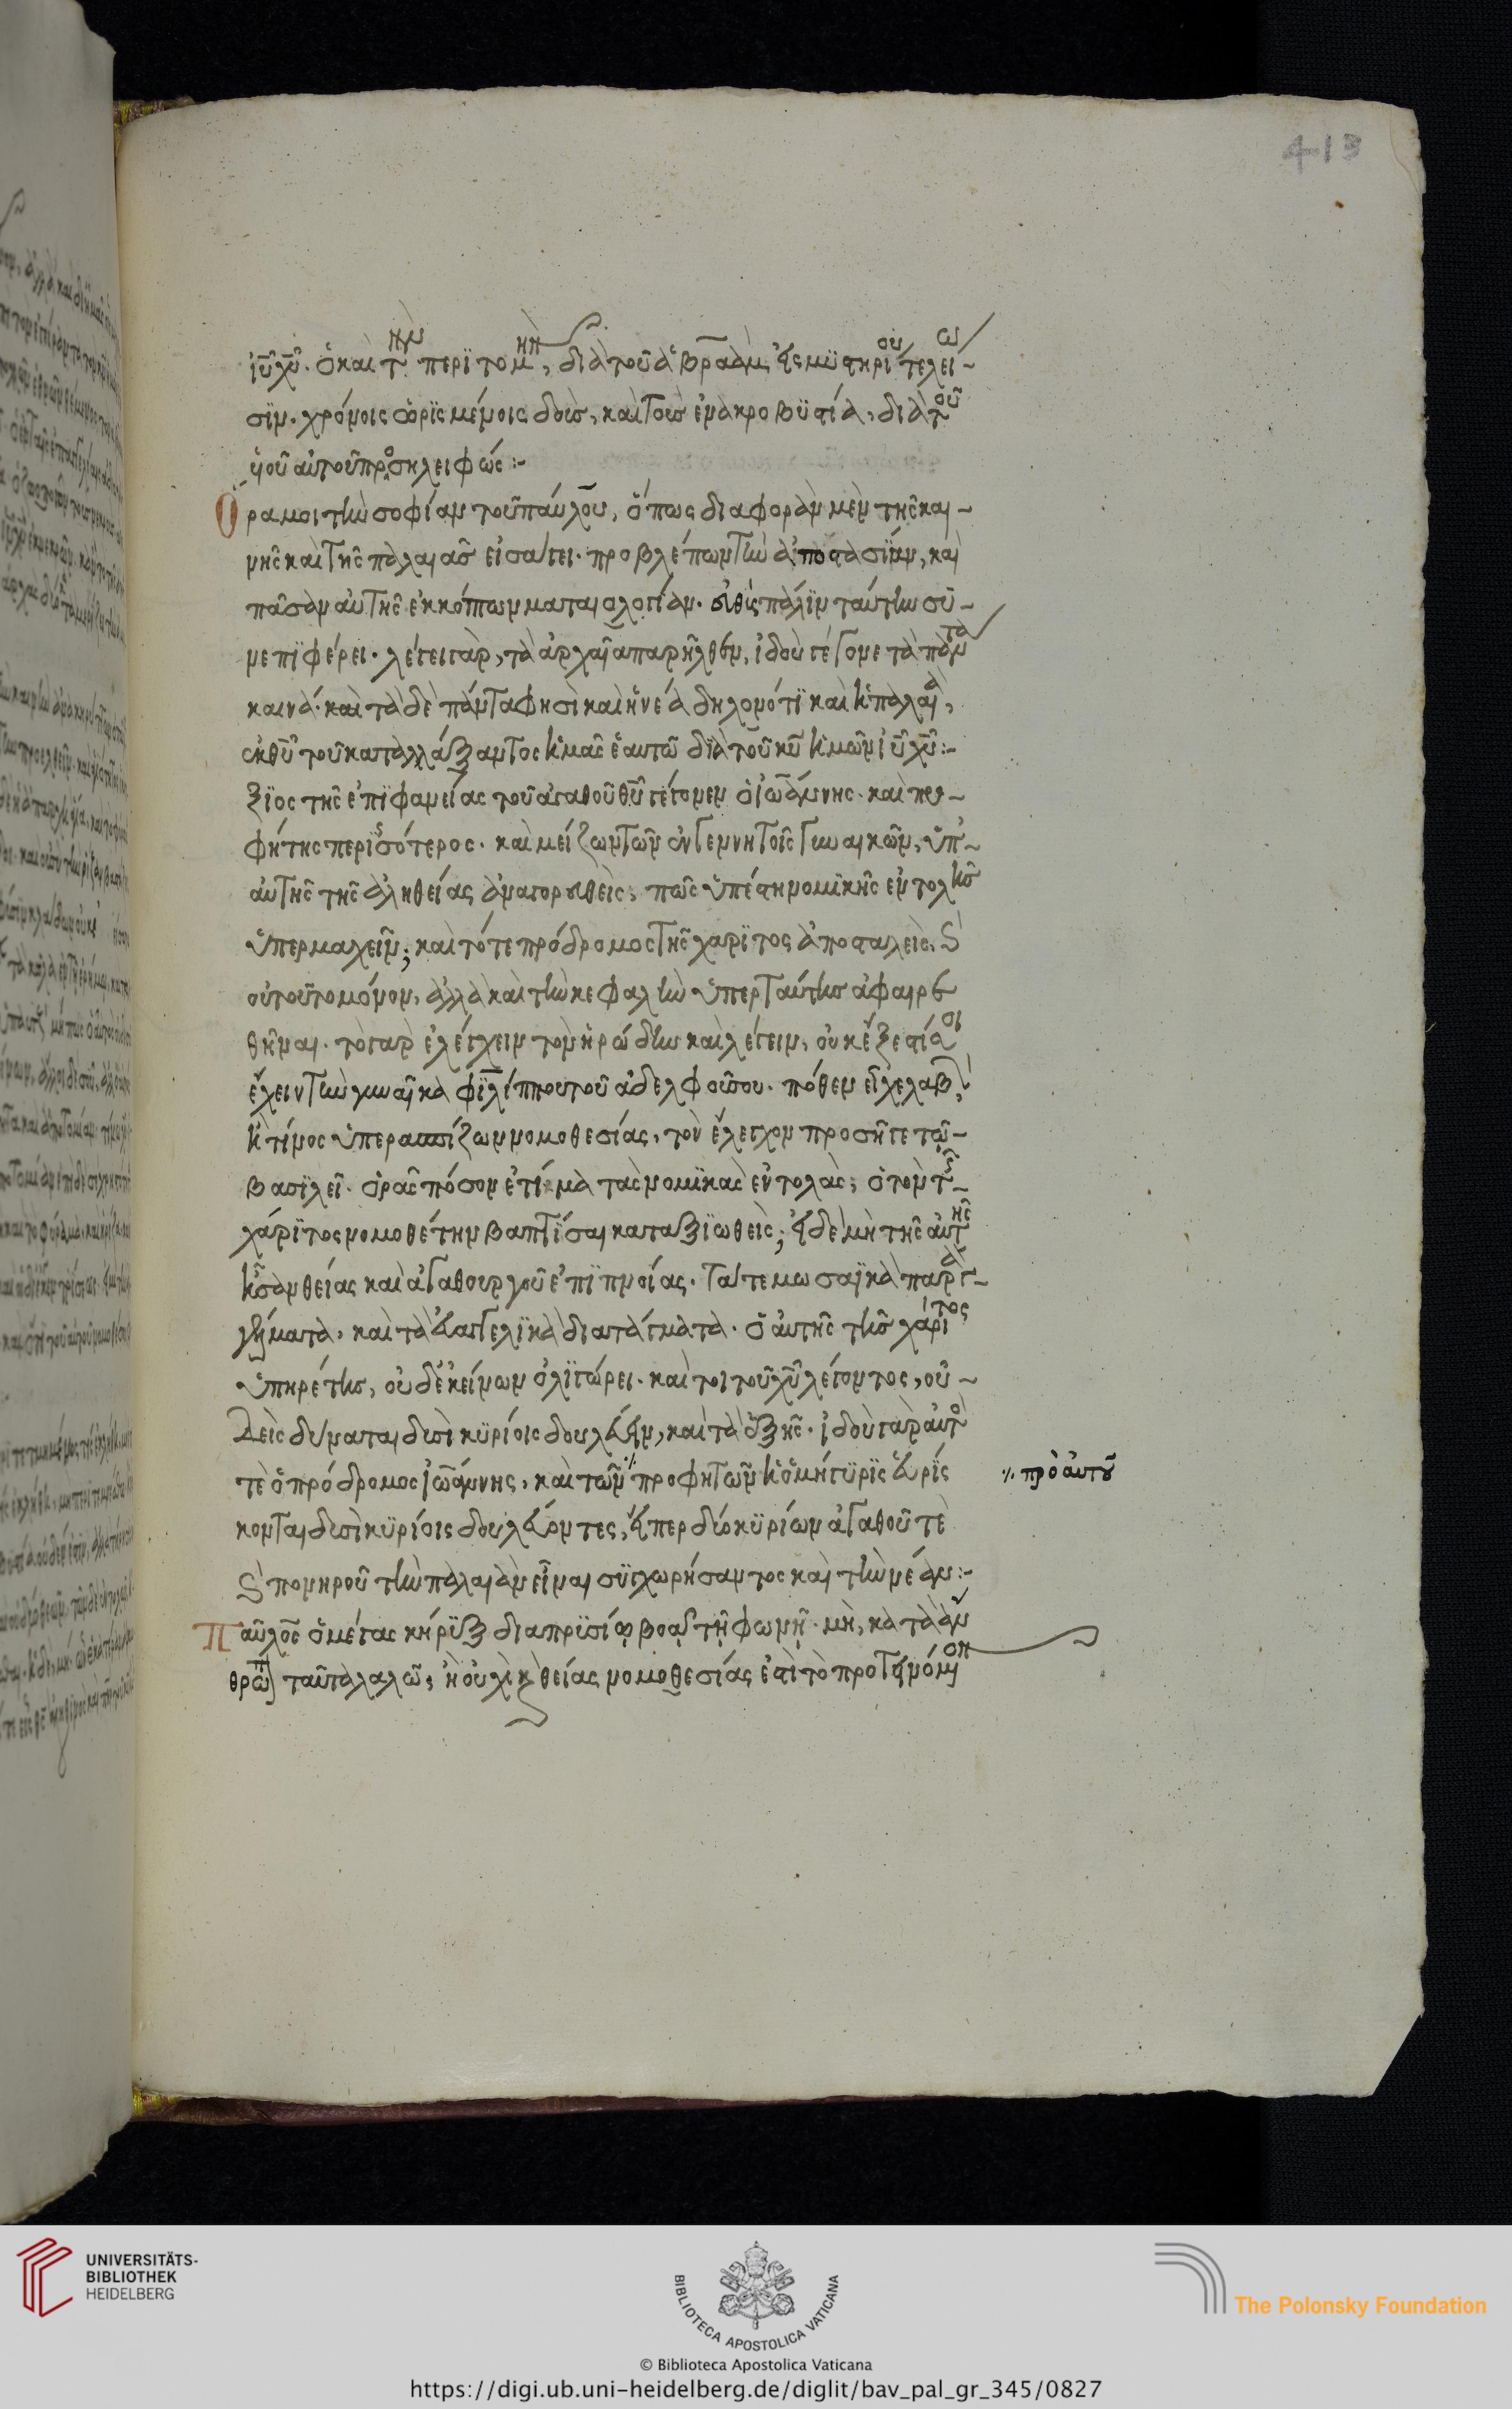 413
ἰῦ χῦ. ὁ καὶ τὴν περιτομὴν, διὰ τοῦ ἀβραὰμ, εἰς μυστηρίου τελείω-
σιν. χρόνοις ὡρισμένοις δοὺς, καὶ τοὺς ἐν ἀκροβυστία, διὰ τοῦ
υἱοῦ αὐτοῦ προσηληφώς :-
Ὅρα μοι τὴν σοφίαν τοῦ παύλου, ὅπως διαφορὰν μὲν τῆς και-
νῆς καὶ τῆς παλαιᾶς εἰσάγει. προβλέπων τὴν ἀποστασίαν, καὶ
πᾶσαν αὐτῆς ἐκκόπτων ματαιολογίαν. αὖθις πάλιν ταύτην συ-
νεπιφέρει. λέγει γὰρ, τὰ ἀρχαῖα παρῆλθεν, ἰδοὺ γέγονε τὰ πάντα
καινά. καὶ τὰ δὲ πάντα φησὶ καὶ ἡ νέα δηλονότι καὶ ἡ παλαιά,
ἐκ θῦ τοῦ καταλλάξαντος ἡμᾶς ἑαυτῶ διὰ τοῦ κῦ ἡμῶν ἰῦ χῦ :-
ξιος τῆς ἐπιφανείας τοῦ ἀγαθοῦ θῦ γέγονεν ὁ ἰωάννης. καὶ προ-
φήτης περισσότερος. καὶ μείζων τῶν ἐν γεννητοῖς γυναικῶν, ὑπ'
αὐτῆς τῆς ἀληθείας ἀναγορευθεὶς, πῶς ὑπέστη νομικῆς ἐντολῆς
ὑπερμαχεῖν; καὶ τότε πρόδρομος τῆς χάριτος ἀποσταλείς, καὶ
οὐ τοῦτο μόνον, ἀλλὰ καὶ τὴν κεφαλὴν ὑπὲρ ταύτης ἀφαιρε
θῆναι. τὸ γὰρ ἐλέγχειν τὸν ἡρώδην καὶ λέγειν, οὐκ ἔξεστί σοι
ἔχειν τὴν γυναῖκα φιλίππου τοῦ ἀδελφοῦ σου. πόθεν εἶχε λαβεῖν
ἢ τίνος ὑπερασπίζων νομοθεσίας, τὸν ἔλεγχον προσῆγε τῷ-
βασιλεῖ. ὁρᾶς πόσον ἐτίμα τὰς νομικὰς ἐντολὰς, ὁ τὸν τῆς
χάριτος νομοθέτην βαπτίσαι καταξιωθεὶς; εἰ δὲ μὴ τῆς αὐτῆς
ἦσαν θείας καὶ ἀγαθουργοῦ ἐπιπνοίας. τά τε μωσαϊκὰ παραγ-
γέλματα, καὶ τὰ εὐαγγελικὰ διατάγματα. ὁ αὐτῆς τῆς χάριτος
ὑπηρέτης, οὐδ' ἐκείνων ὀλιγώρει. καί τοι τοῦ χῦ λέγοντος, οὐ-
δεὶς δύναται δυσὶ κυρίοις δουλεύειν, καὶ τὰ ἑξῆς. ἰδοὺ γὰρ αὐτός
τε ὁ πρόδρομος ἰωάννης, καὶ τῶν ⁒ προφητῶν ἡ ὁμήγυρις εὑρίσ
κονται δυσὶ κυρίοις δουλεύοντες, εἴπερ δύο κυρίων ἀγαθοῦ τε
καὶ πονηροῦ τὴν παλαιὰν εἶναι συγχωρήσαντος καὶ τὴν νέαν :-
⁒ πρὸ αὐτοῦ
Παῦλος ὁ μέγας κήρυξ διαπρυσίῳ βοᾷ τῇ φωνῇ. μὴ, κατὰ ἄν
θρωπον ταῦτα λαλῶ, ἢ οὐχὶ ἐκ θείας νομοθεσίας ἐστὶ τὸ προτεινόμενον
UNIVERSITÄTS-
BIBLIOTHEK
HEIDELBERG
BIBLIOTECA APOSTOLICA VATICANA
The Polonsky Foundation
© Biblioteca Apostolica Vaticana
https://digi.ub.uni-heidelberg.de/diglit/bav_pal_gr_345/0827